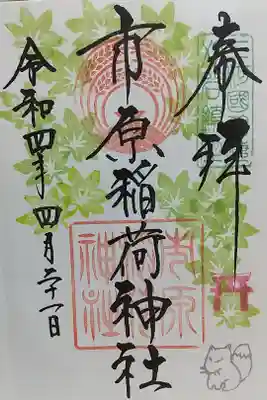 参拝
市原稲荷神社
令和四年四月二十一日
市原
神社